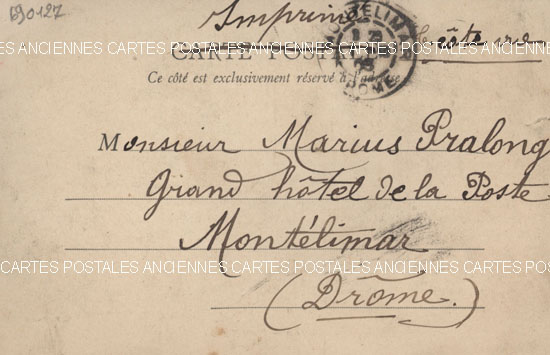 690127
Imprimé
MONTELIMAR
DROME
CARTES POSTALES ANCIENNES CARTES POSTALES ANCIENNES CARTES POSTALES
CARTE POSTALE
Ce côté est exclusivement réservé à l'adresse
Monsieur Marius Pralong
Grand hôtel de la Poste
Montélimar
CARTES POSTALES ANCIENNES CARTES POSTALES ANCIENNES CARTES POSTALES
(Drome.)